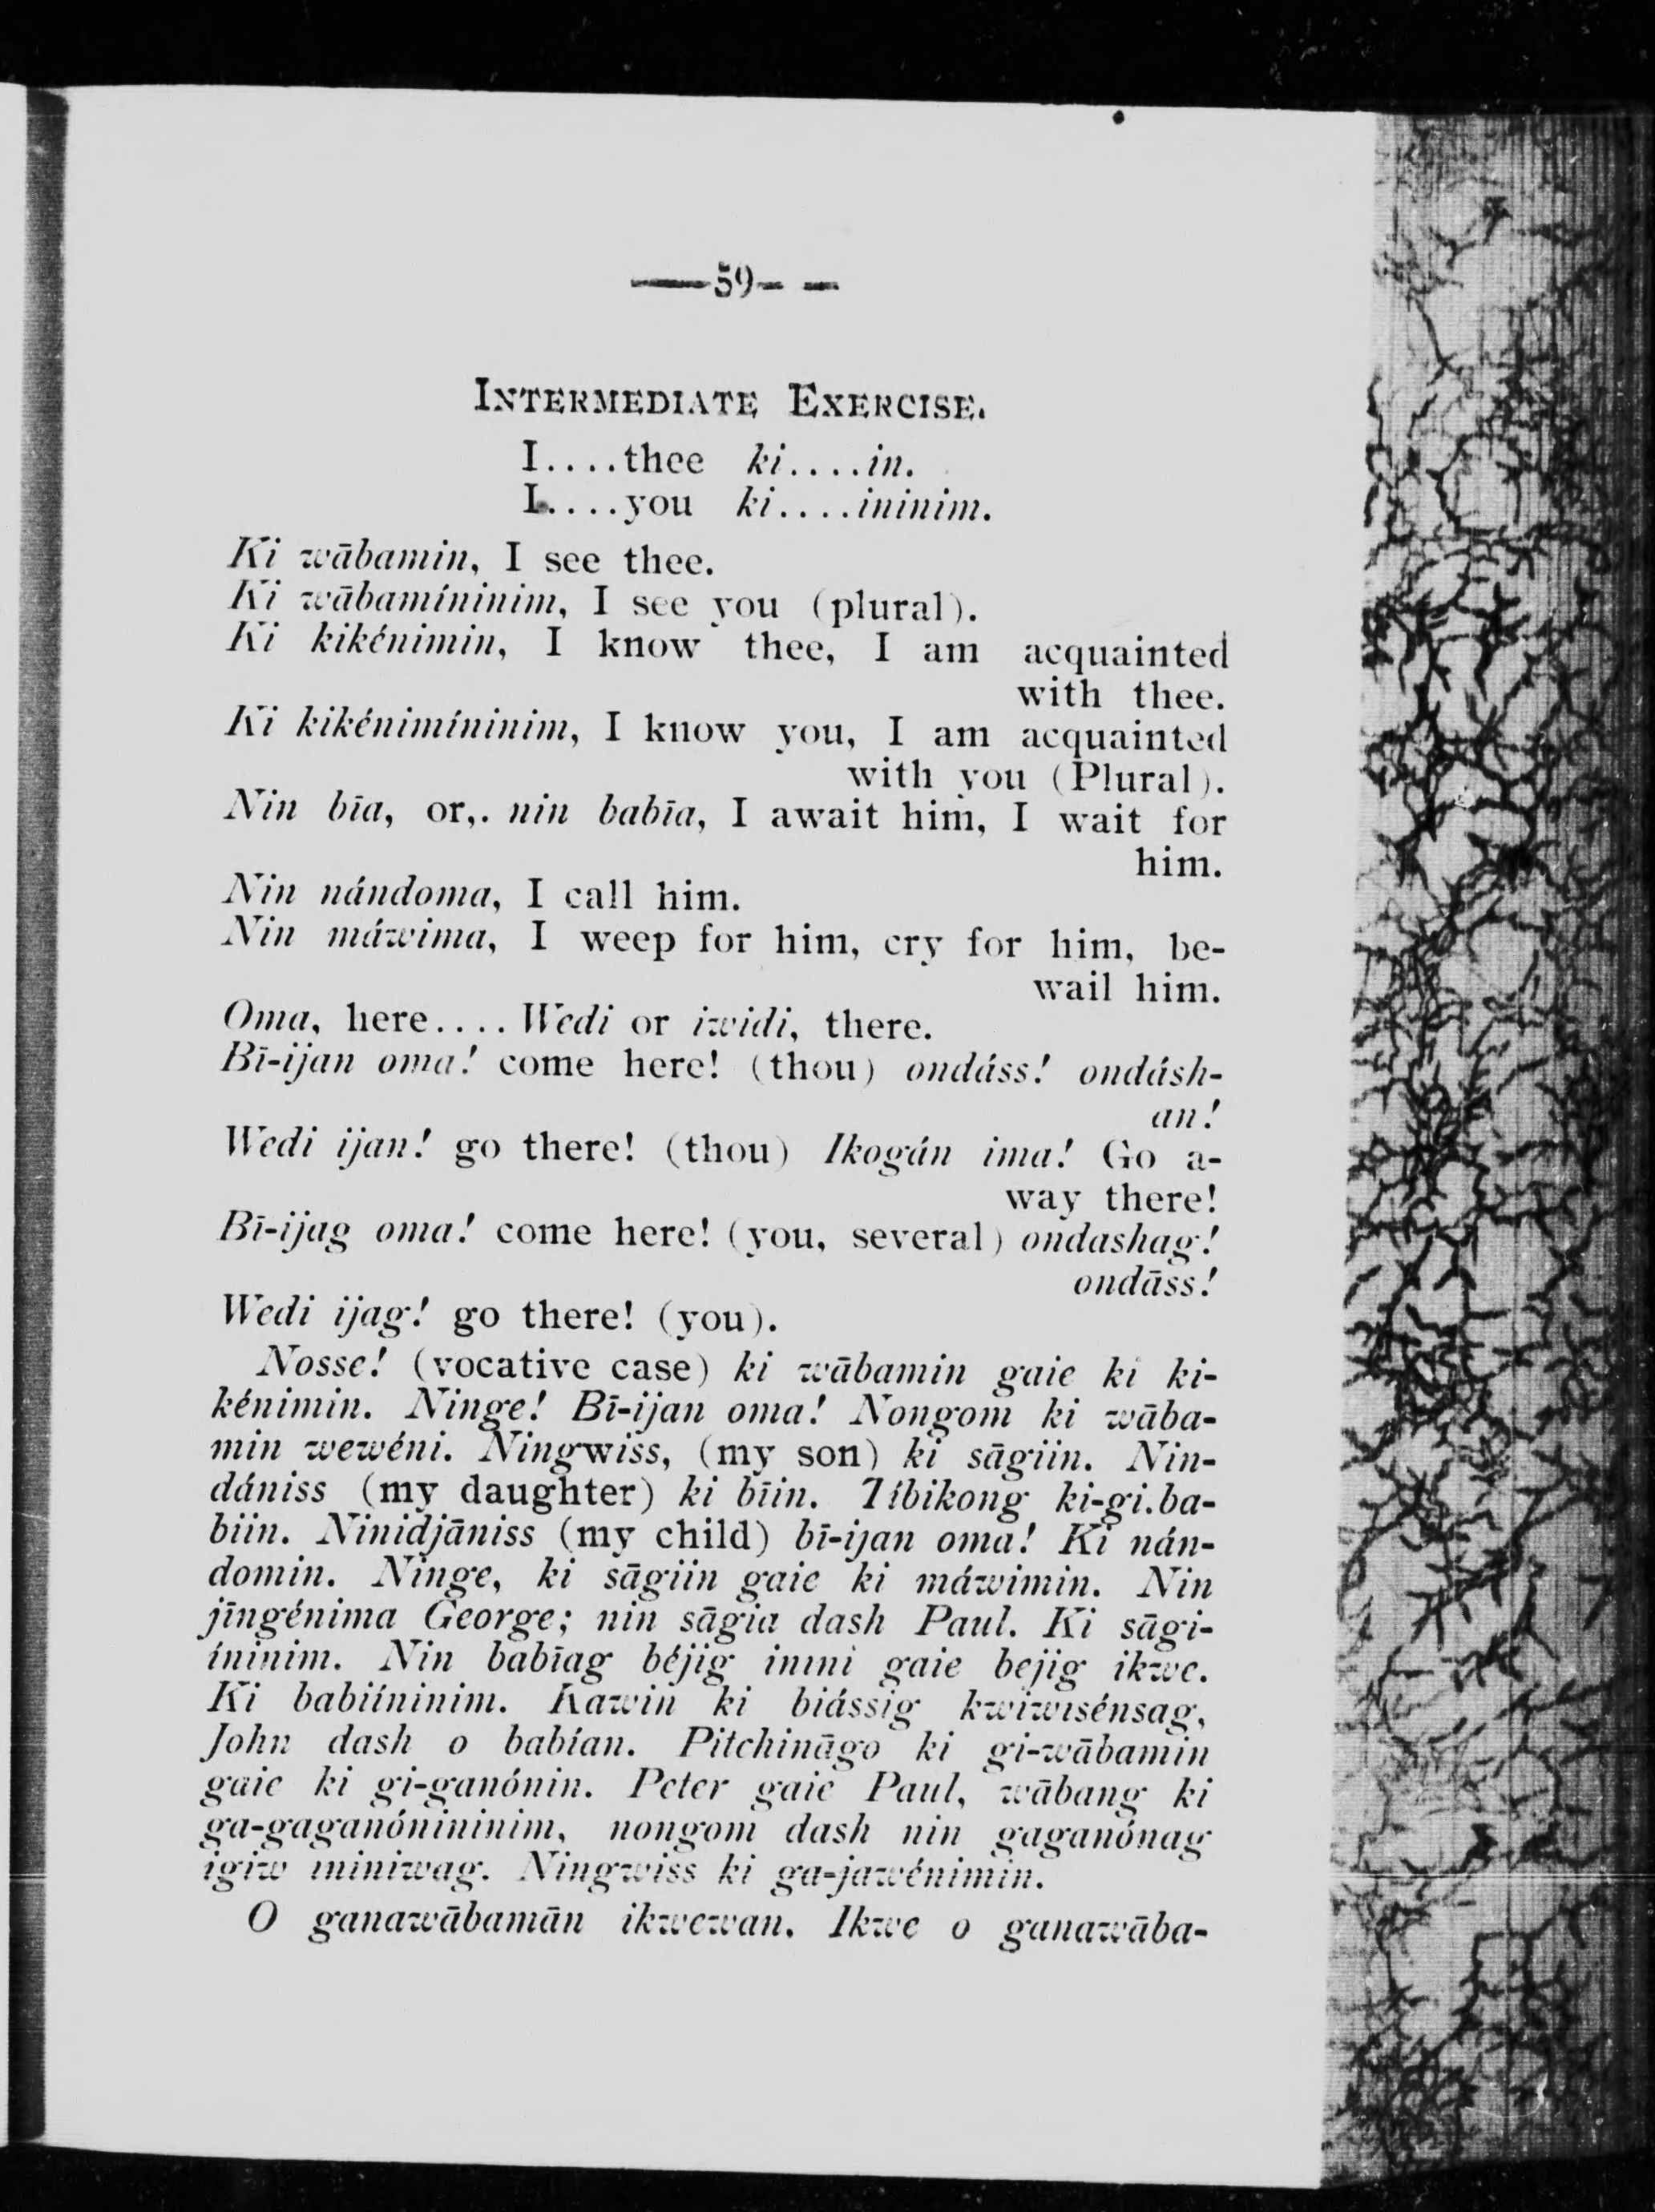 ——59— —
INTERMEDIATE EXERCISE.
I....thee ki....in.
I....you ki....ininim.
Ki wābamin, I see thee.
Ki wābamíninim, I see you (plural).
Ki kikénimin, I know thee, I am acquainted
with thee.
Ki kikénimíninim, I know you, I am acquainted
with you (Plural).
Nin bīa, or,. nin babīa, I await him, I wait for
him.
Nin nándoma, I call him.
Nin máwima, I weep for him, cry for him, be-
wail him.
Oma, here.... Wedi or iwidi, there.
Bī-ijan oma! come here! (thou) ondáss! ondásh-
an!
Wedi ijan! go there! (thou) Ikogán ima! Go a-
way there!
Bī-ijag oma! come here! (you, several) ondashag!
ondāss!
Wedi ijag! go there! (you).
Nosse! (vocative case) ki wābamin gaie ki ki-
kénimin. Ninge! Bī-ijan oma! Nongom ki wāba-
min wewéni. Ningwiss, (my son) ki sāgiin. Nin-
dániss (my daughter) ki bīin. Tíbikong ki-gi.ba-
biin. Ninidjāniss (my child) bī-ijan oma! Ki nán-
domin. Ninge, ki sāgiin gaie ki máwimin. Nin
jīngénima George; nin sāgia dash Paul. Ki sāgi-
íninim. Nin babīag béjig inini gaie bejig ikwe.
Ki babiíninim. Kawin ki biássig kwiwisénsag,
John dash o babían. Pitchināgo ki gi-wābamin
gaie ki gi-ganónin. Peter gaie Paul, wābang ki
ga-gaganónininim, nongom dash nin gaganónag
igiw miniwag. Ningwiss ki ga-jawénimin.
O ganawābamān ikwewan. Ikwe o ganawāba-